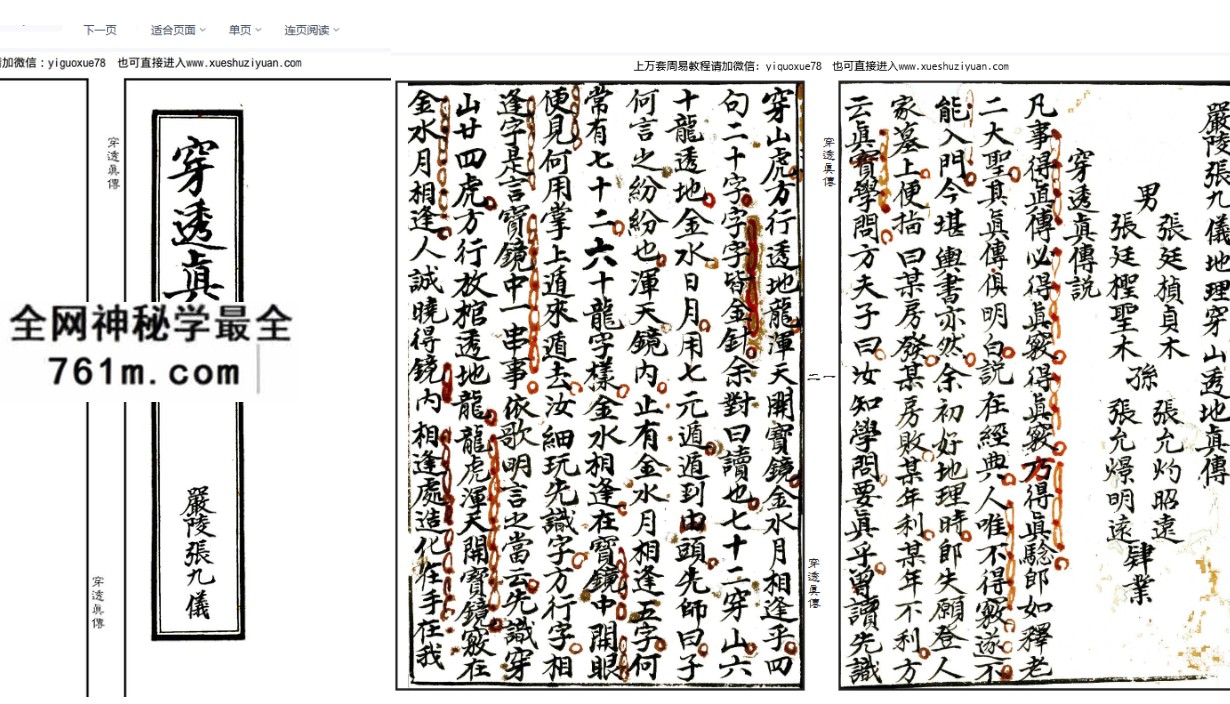 下一页 适合页面 单页 连页阅读
加微信：yiguoxue78 也可直接进入www.xueshuziyuan.com
上万套周易教程请加微信：yiquoxue78 也可直接进入www.xueshuziyuan.com
穿透眞傳
穿透眞
嚴陵張九儀
全网神秘学最全
761m.com
穿透眞傳
穿透眞傳
嚴陵張九儀地理穿山透地眞傳
男
張廷楨貞木
張廷檉聖木
孫
張允灼昭遠
張允燝明遠
肄業
穿透眞傳説
凡事得眞傳必得眞竅得眞竅方得眞騐郎如釋老
二大聖其眞傳俱明白説在經典人唯不得竅遂不
能入門今堪輿書亦然余初好地理時郎失願登人
家墓上便指曰某房發某房敗某年利某年不利方
云眞實學問方夫子曰汝知學問要眞乎曾讀先識
一
二
穿透眞傳
穿山虎方行透地龍渾天開寶鏡金水月相逢乎四
句二十字字字皆金針余對曰讀也七十二穿山六
十龍透地金水日月用七元遁遁到由頭先師曰子
何言之紛紛也渾天鏡内止有金水月相逢五字何
常有七十二六十龍字樣金水相逢在寶鏡中開眼
便見何用掌上遁來遁去汝細玩先識字方行字相
逢字是言寶鏡中一串事依歌明言之當云先識穿
山廿四虎方行放棺透地龍龍虎渾天開寶鏡竅在
金水月相逢人誠曉得鏡内相逢處造化在手在我
穿透眞傳